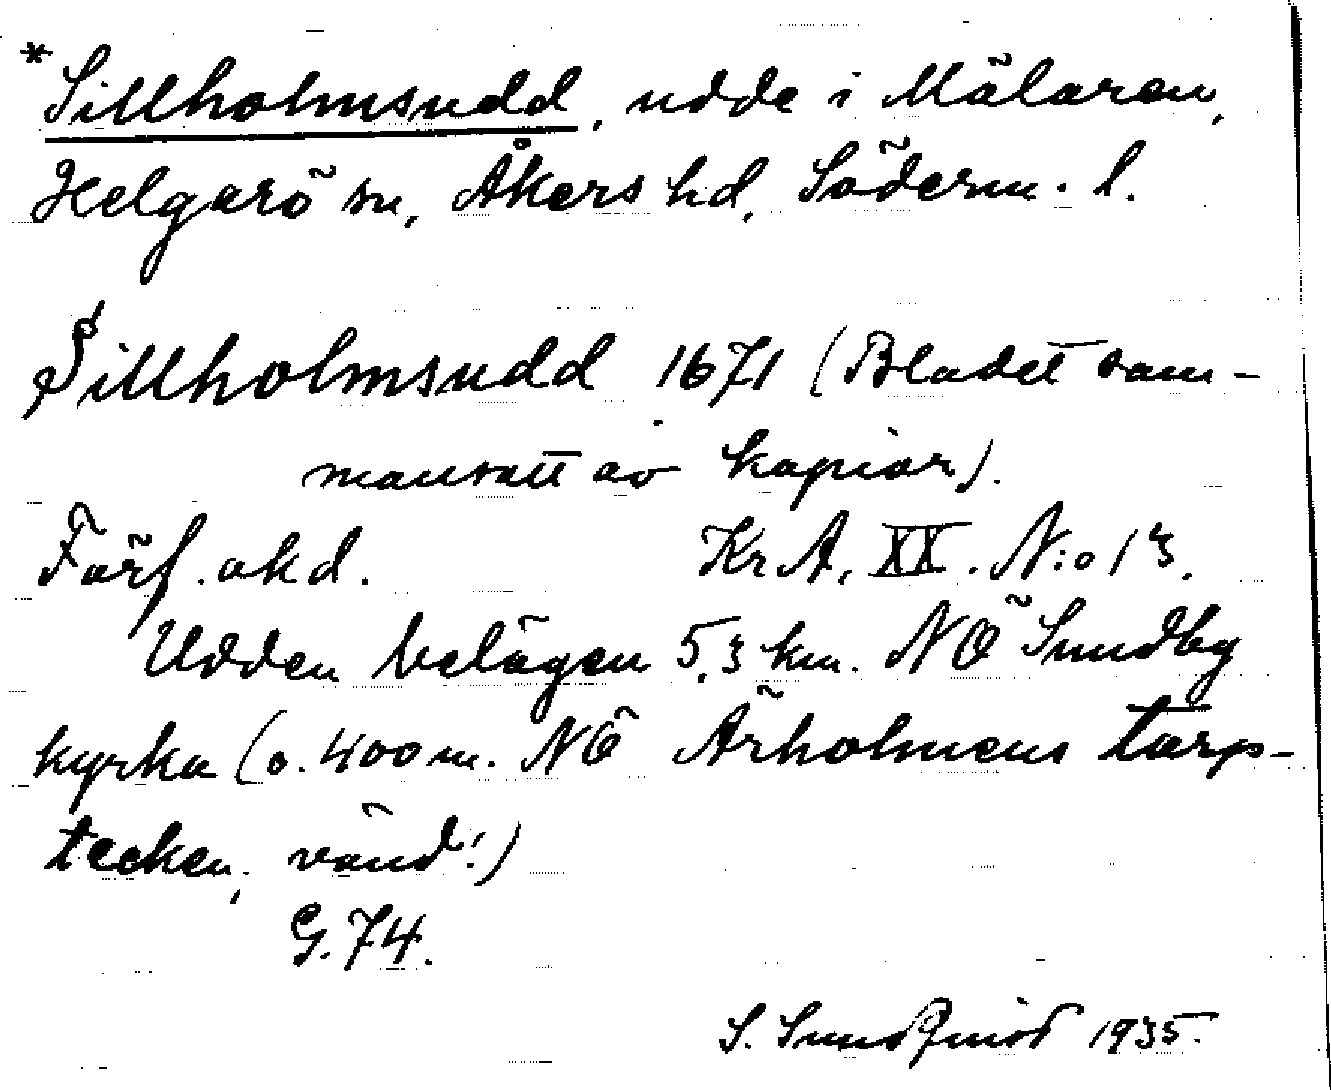 *Sillholmsudd, udde i Mälaren,
Helgarö sn, Åkers hd, Söderm. l.
Sillholmsudd 1671 (Bladet sam-
mansatt av kopior).
Förf. okd. KrA, XX. N:o 13.
Udden belägen 5,3 km. NÖ Sundby
kyrka (o. 400 m. NÖ Ärholmens torp-
tecken, vänd!)
G. 74.
S. Sundquist 1935.